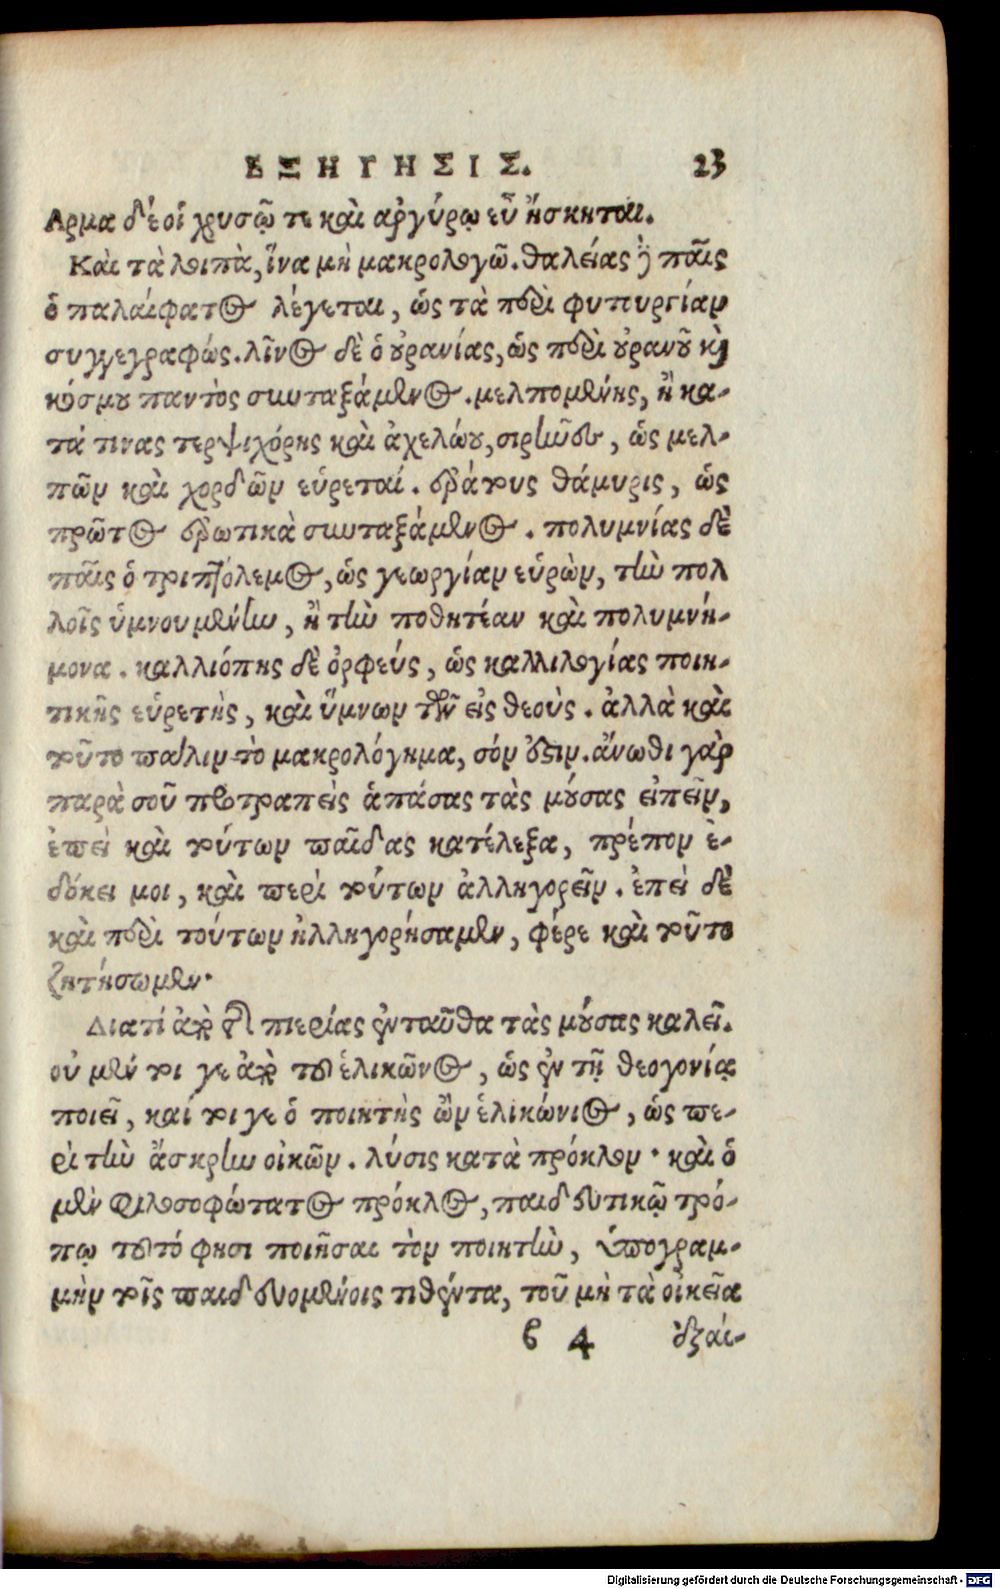 ΕΞΗΓΗΣΙΣ. 23
Αρμα δέ οἱ χρυσῷ τε καὶ ἀργύρῳ εὖ ἤσκηται.
Καὶ τὰ λοιπὰ, ἵνα μὴ μακρολογῶ. θαλείας ἢ παῖς
ὁ παλαίφατος λέγεται, ὡς τὰ περὶ φυτυργίαν
συγγεγραφώς. λῖνος δὲ ὁ ὀυρανίας, ὡς περὶ ὀυρανοῦ καὶ
κόσμου παντὸς συνταξάμενος. μελπομένης, ἢ κα-
τά τινας τερψιχόρης καὶ ἀχελώου, σιρῆνες, ὡς μελ-
πῶν καὶ χορδῶν εὑρεταί. ἐράτους θάμυρις, ὡς
πρῶτος ἐρωτικὰ συνταξάμενος. πολυμνίας δὲ
παῖς ὁ τριπτόλεμος, ὡς γεωργίαν εὑρὼν, τὴν πολ
λοῖς ὑμνουμένην, ἢ τὴν ποθητέαν καὶ πολυμνή-
μονα. καλλιόπης δὲ ὀρφεύς, ὡς καλλιλογίας ποιη-
τικῆς εὑρετὴς, καὶ ὕμνων τῶν εἰς θεοὺς. ἀλλὰ καὶ
τοῦτο πάλιν τὸ μακρολόγημα, σόν ἐστιν. ἄνωθι γὰρ
παρὰ σοῦ προτραπεὶς ἁπάσας τὰς μούσας εἰπεῖν,
ἐπεὶ καὶ τούτων παῖδας κατέλεξα, πρέπον ἐ-
δόκει μοι, καὶ περὶ τούτων ἀλληγορεῖν. ἐπεὶ δὲ
καὶ περὶ τούτων ἠλληγορήσαμεν, φέρε καὶ τοῦτο
ζητήσωμεν.
Διατί ἀπὸ τῆς πιερίας ἐνταῦθα τὰς μούσας καλεῖ.
οὐ μέν τοι γε ἀπὸ τοῦ ἑλικῶνος, ὡς ἐν τῇ θεογονίᾳ
ποιεῖ, καί τοι γε ὁ ποιητὴς ὢν ἑλικώνιος, ὡς πε-
ρὶ τὴν ἄσκρην οἰκῶν. λύσις κατὰ πρόκλον. καὶ ὁ
μὲν φιλοσοφώτατος πρόκλος, παιδευτικῷ τρό-
πῳ τοῦτό φησι ποιῆσαι τὸν ποιητὴν, ὑπογραμ-
μὴν τοῖς παιδευομένοις τιθέντα, τοῦ μὴ τὰ οἰκεῖα
c 4 ἐξαί-
Digitalisierung gefördert durch die Deutsche Forschungsgemeinschaft - DFG